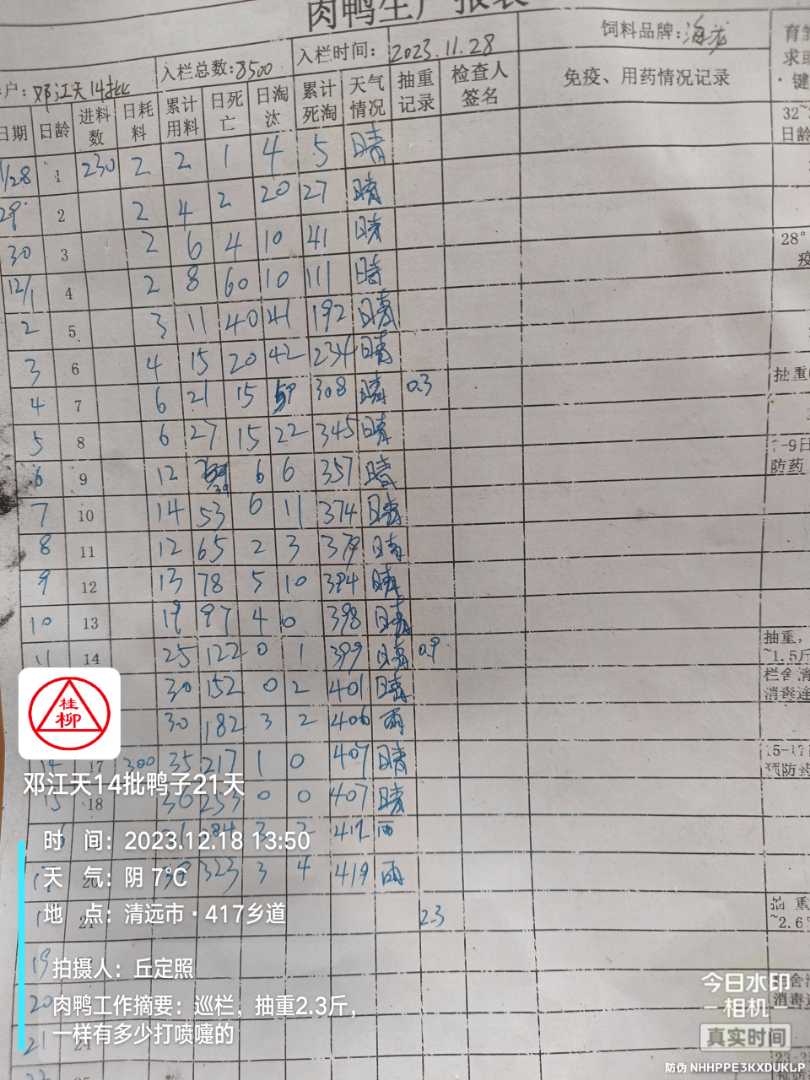 肉鸭生产报表
户：邓江天14批 入栏总数：8500 入栏时间：2023.11.28 饲料品牌：海龙
日期 日龄 进料数 日耗料 累计用料 日死亡 日淘汰 累计死淘 天气情况 抽重记录 检查人签名 免疫、用药情况记录
1/28 1 230 2 2 1 4 5 晴
29 2 2 4 2 20 27 晴
30 3 2 6 4 10 41 晴 28°
12/1 4 2 8 60 10 111 晴
2 5 3 11 40 41 192 晴
3 6 4 15 20 42 254 晴
4 7 6 21 15 59 308 晴 0.3
5 8 6 27 15 22 345 晴
6 9 12 39 6 6 357 晴 防药
7 10 14 53 6 11 374 晴
8 11 12 65 2 3 379 晴
9 12 13 78 5 10 394 晴
10 13 19 97 4 0 398 晴
11 14 25 122 0 1 399 晴 0.9 抽重，
~1.5斤
30 152 0 2 401 晴 栏舍清
消毒
30 182 3 2 406 雨
17 300 35 217 1 0 407 晴 15-17
预防药
15 18 253 0 0 407 晴
2 412 雨
17 20 323 3 4 419 雨
21 2.3 抽重
~2.6
19
20
21
桂柳
邓江天14批鸭子21天
时 间：2023.12.18 13:50
天 气：阴 7℃
地 点：清远市·417乡道
拍摄人：丘定照
肉鸭工作摘要：巡栏，抽重2.3斤，
一样有多少打喷嚏的
今日水印
相机
真实时间
防伪 NHHPPE3KXDUKLP